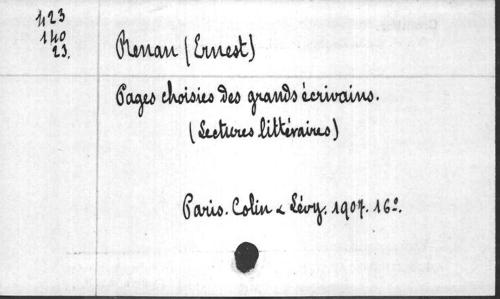 423
140
23.
Renan (Ernest)
Pages choisies des grands écrivains.
(Lectures littéraires)
Paris. Colin & Lévy. 1907. 16º.